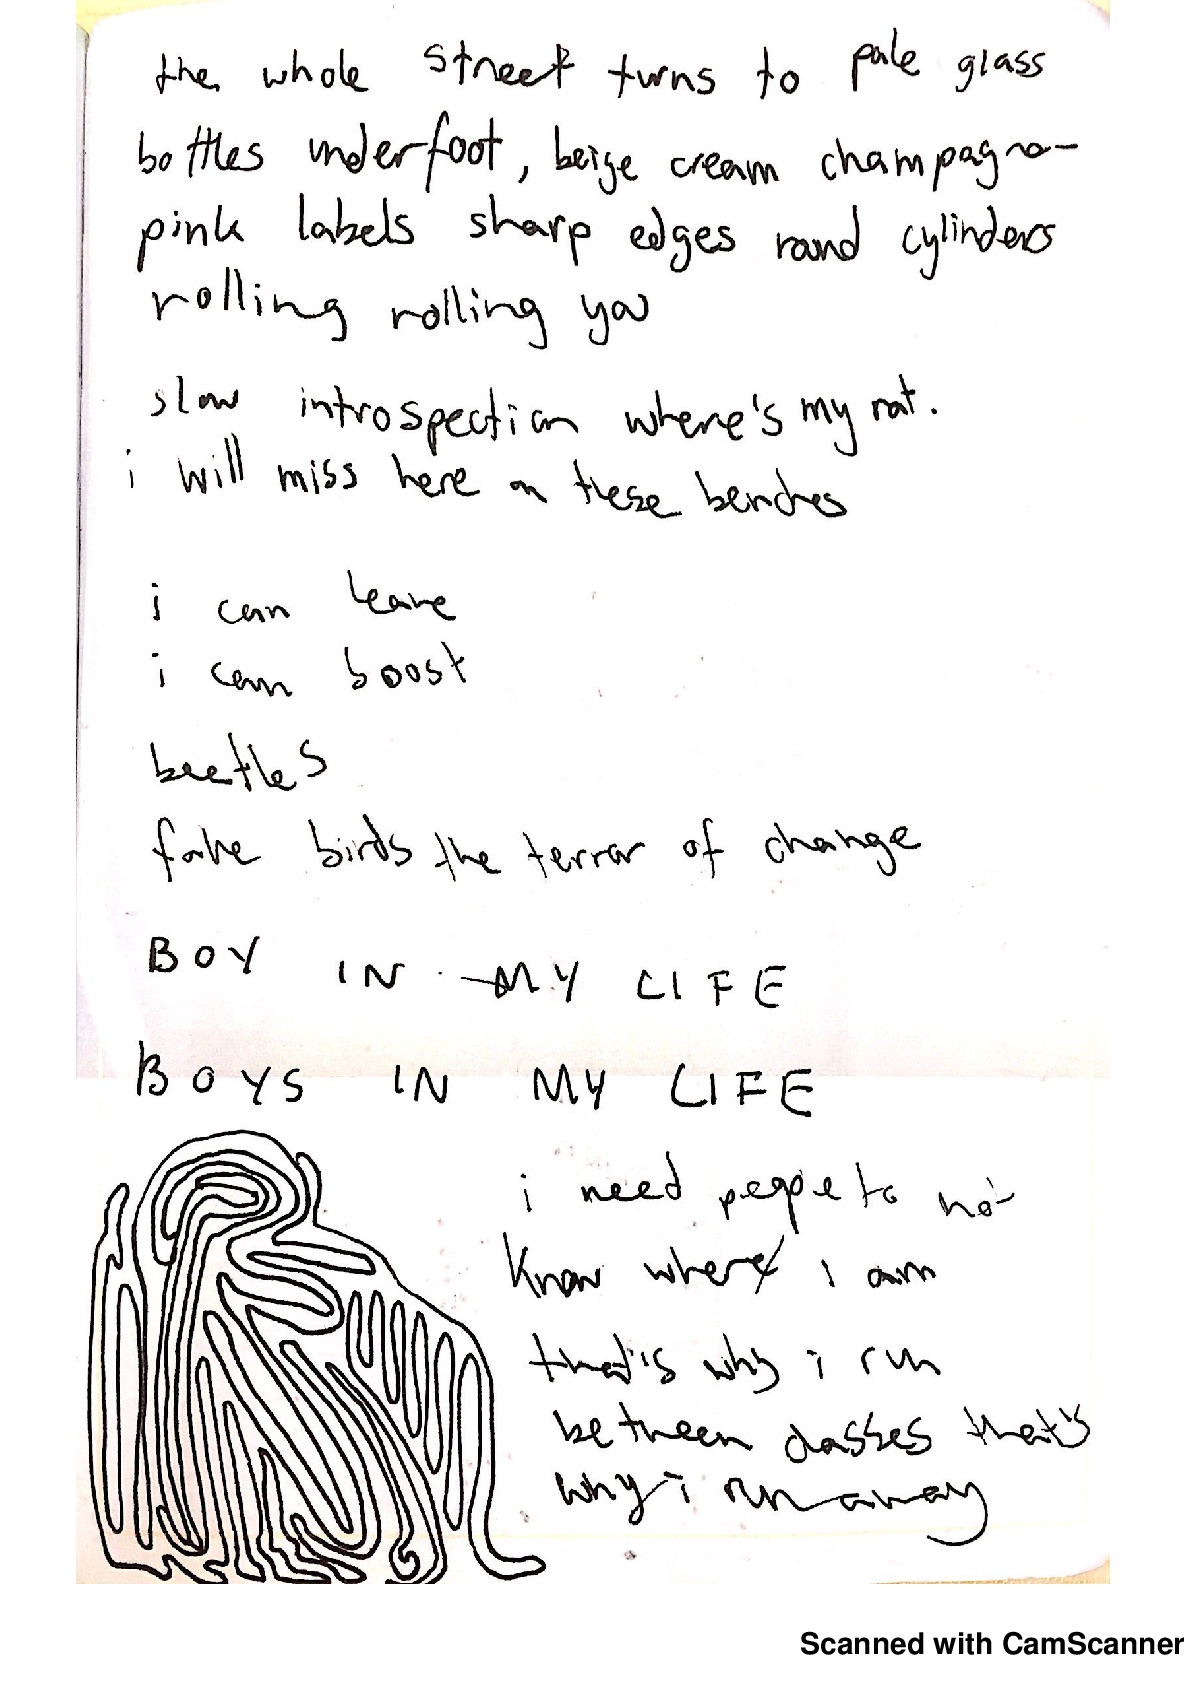 the whole street turns to pale glass
bottles underfoot, beige cream champagne-
pink labels sharp edges round cylinders
rolling rolling you
slow introspection where's my rat.
i will miss here on these benches
i can leave
i can boost
beetles
fake birds the terror of change
BOY IN MY LIFE
BOYS IN MY LIFE
i need people to no-
know where i am
that's why i run
between classes that's
why i run away
Scanned with CamScanner